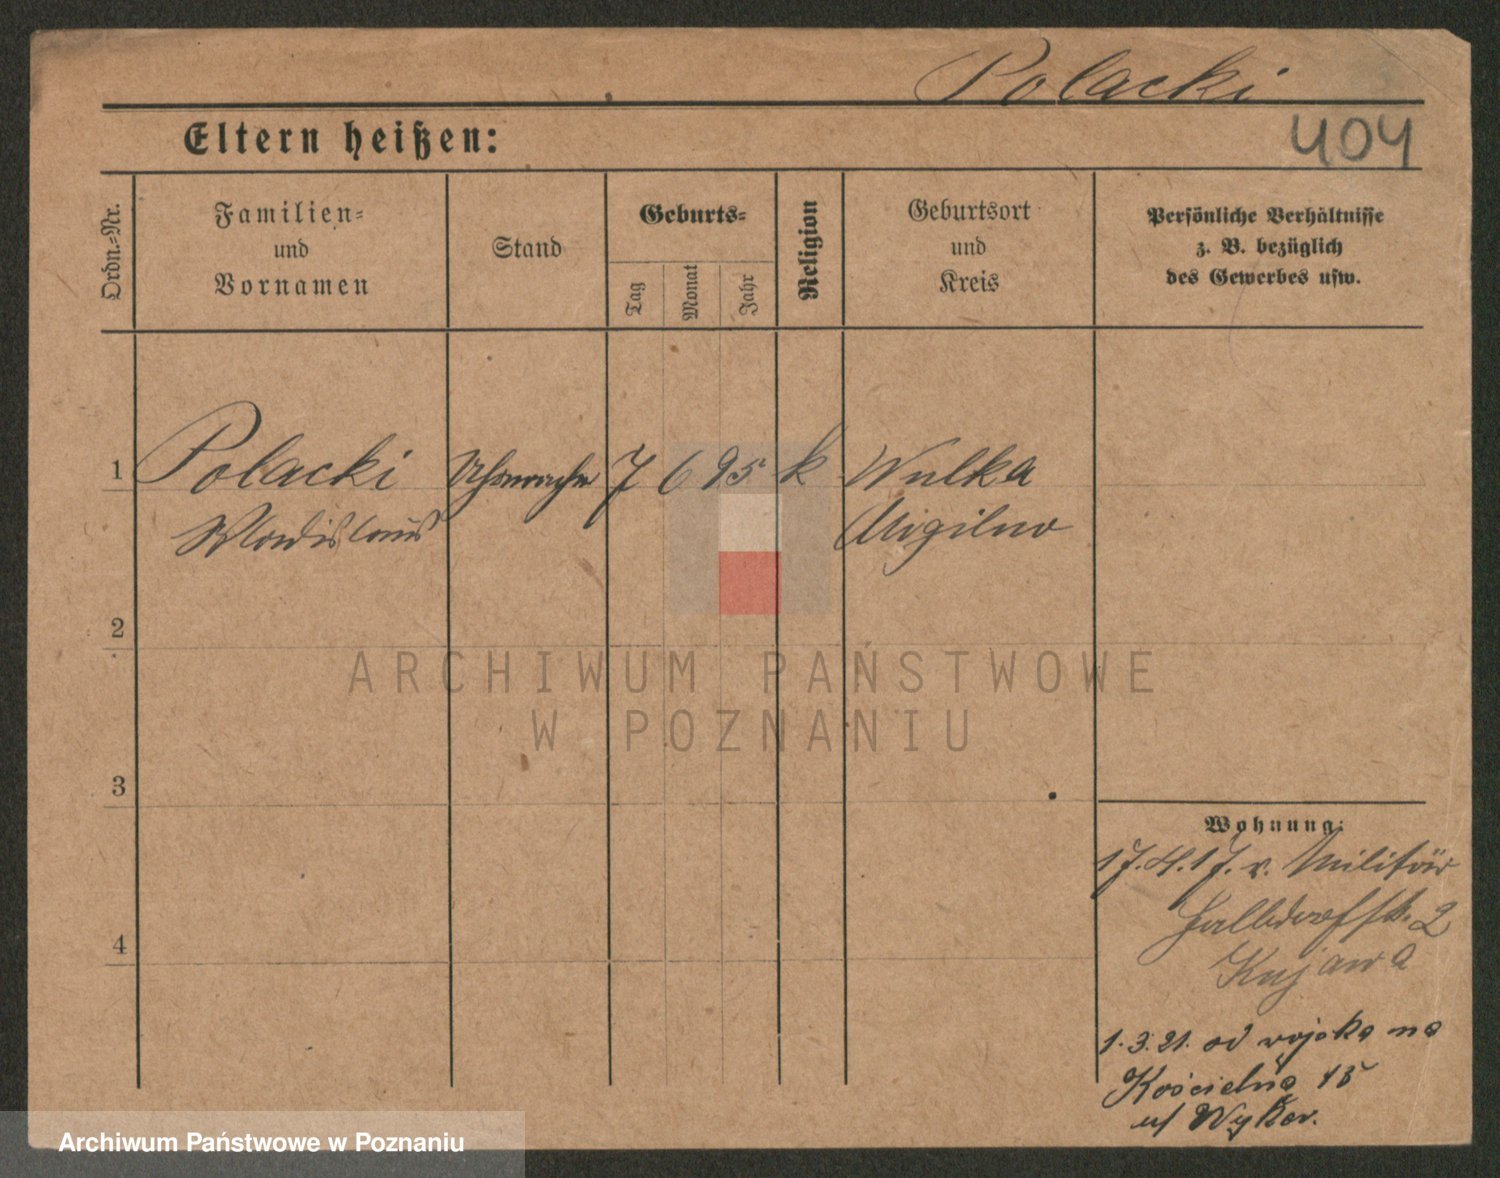 Polacki
404
Eltern heißen:
Ordn.=Nr.
Familien=
und
Vornamen
Stand
Geburts=
Tag
Monat
Jahr
Religion
Geburtsort
und
Kreis
Persönliche Verhältnisse
z. B. bezüglich
des Gewerbes usw.
1
Polacki
Wladislaus
Uhrmacher
7
6
95
k
Wulka
Mogilno
2
3
4
Wohnung:
17.4.17. v. Militär
Halbdorfstr. 2
Kujawa
1.3.21. od wojska na
Kościelną 15
u/
ARCHIWUM PAŃSTWOWE
W POZNANIU
Archiwum Państwowe w Poznaniu